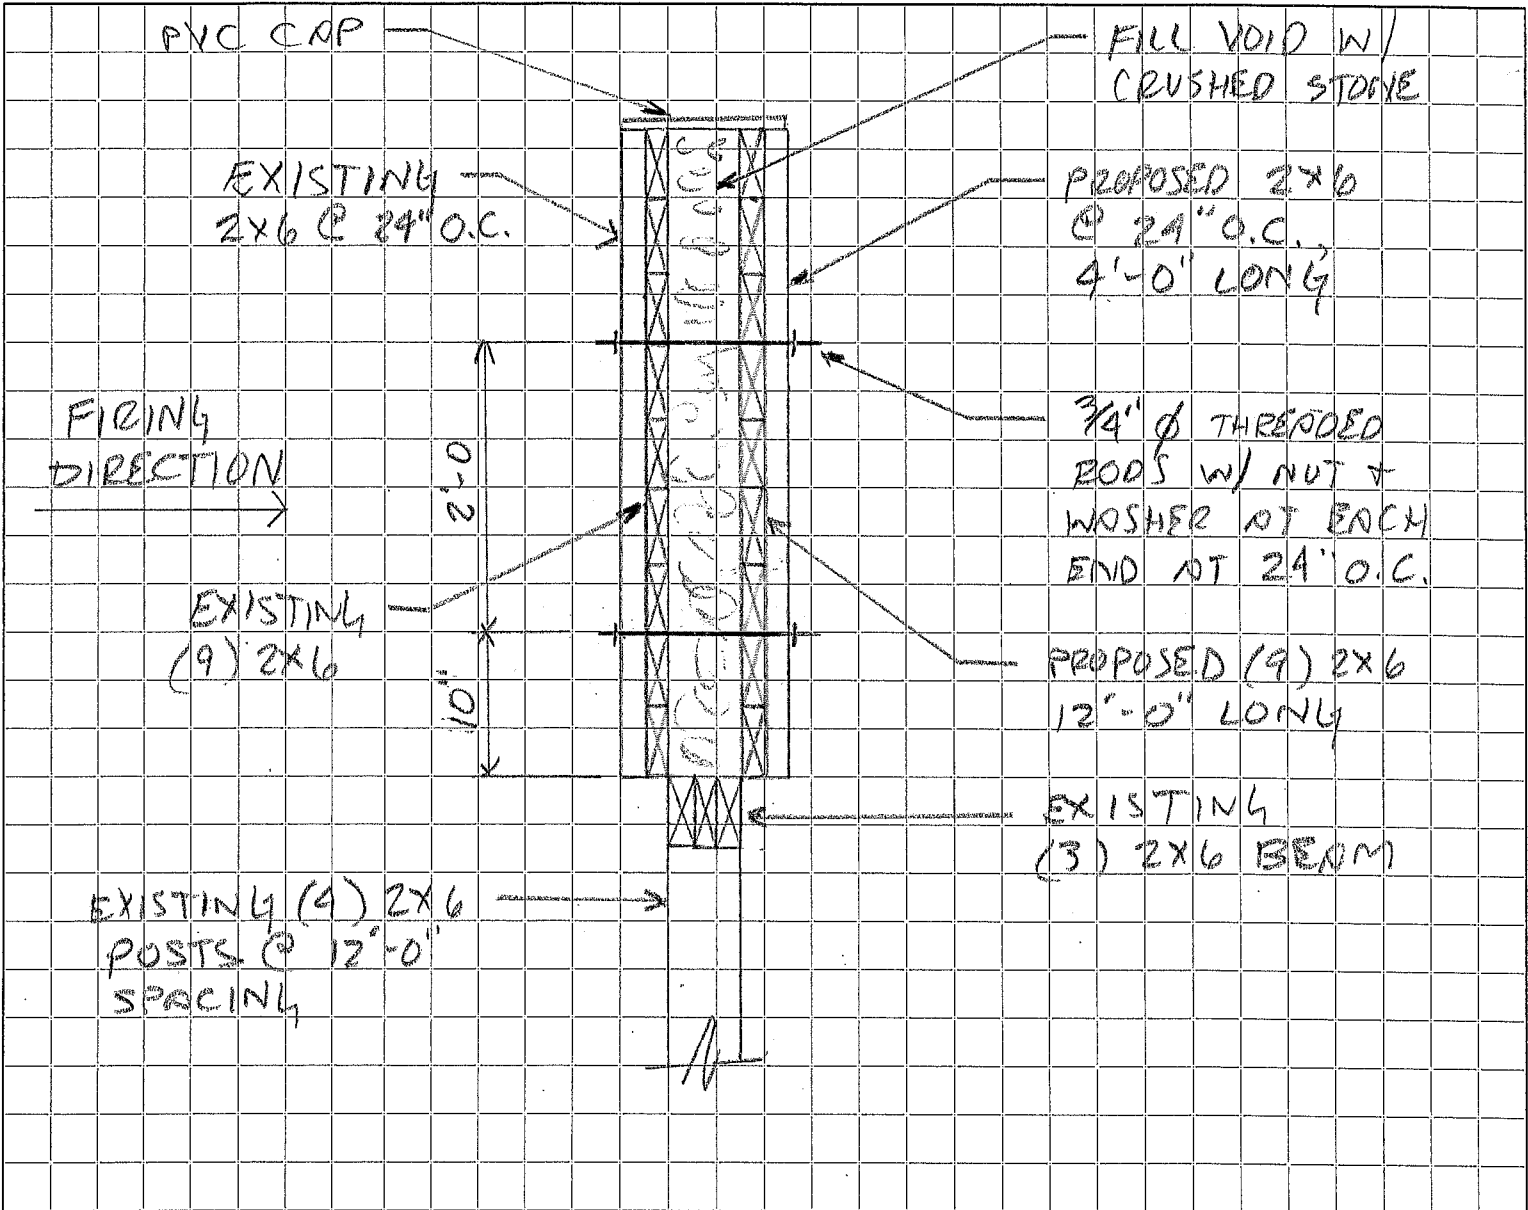 PVC CAP
FILL VOID W/
CRUSHED STONE
EXISTING
2X6 @ 24" O.C.
PROPOSED 2X6
@ 24" O.C.,
4'-0" LONG
FIRING
DIRECTION
2'-0
3/4" ⌀ THREADED
RODS W/ NUT +
WASHER AT EACH
END AT 24" O.C.
EXISTING
(9) 2X6
10"
PROPOSED (9) 2X6
12'-0" LONG
EXISTING
(3) 2X6 BEAM
EXISTING (4) 2X6
POSTS @ 12'-0"
SPACING